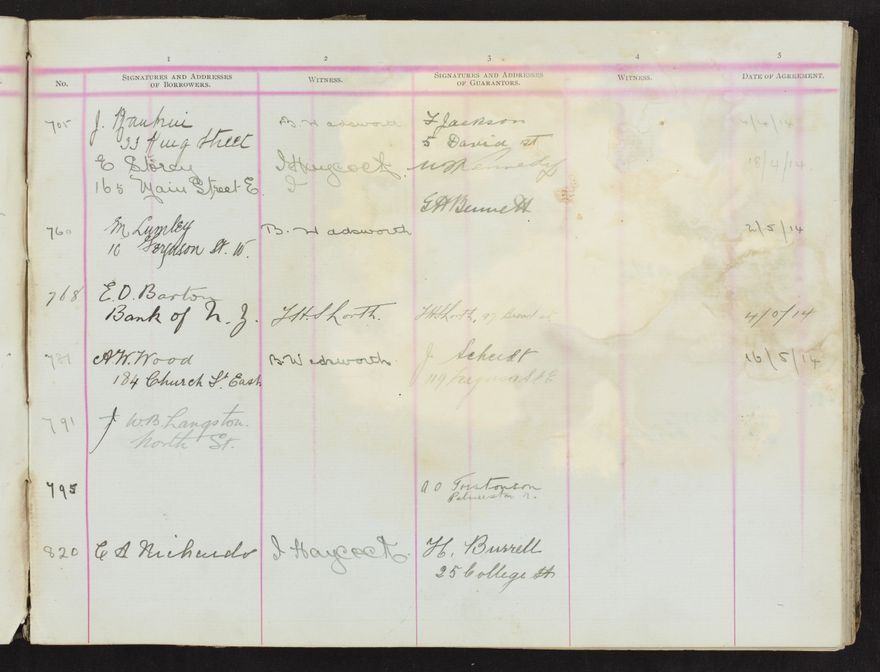 1 2 3 4 5
No. SIGNATURES AND ADDRESSES OF BORROWERS. WITNESS. SIGNATURES AND ADDRESSES OF GUARANTORS. WITNESS. DATE OF AGREEMENT.
705 J. B. Wadsworth F Jackson /4/14
33 King Street 5 David st
E Storey I Haycock. Kennedy 18/4/14.
165 Main Street E. I
G H Bennett
760 M Lumley B. Wadsworth 2/5/14
10 Ferguson St. W.
768 E. D. Barton
Bank of N. Z. J. H. Shorth. J H Shorth, 97 Broad st 4/0/14
781 A. W. Wood B. Wadsworth J Scheidt 16/5/14
184 Church St. East 119 Ferguson St E
791 J W. B. Langston.
North St.
795 A O
Palmerston N.
820 E A Richards I Haycock. H. Burrell
25 College St